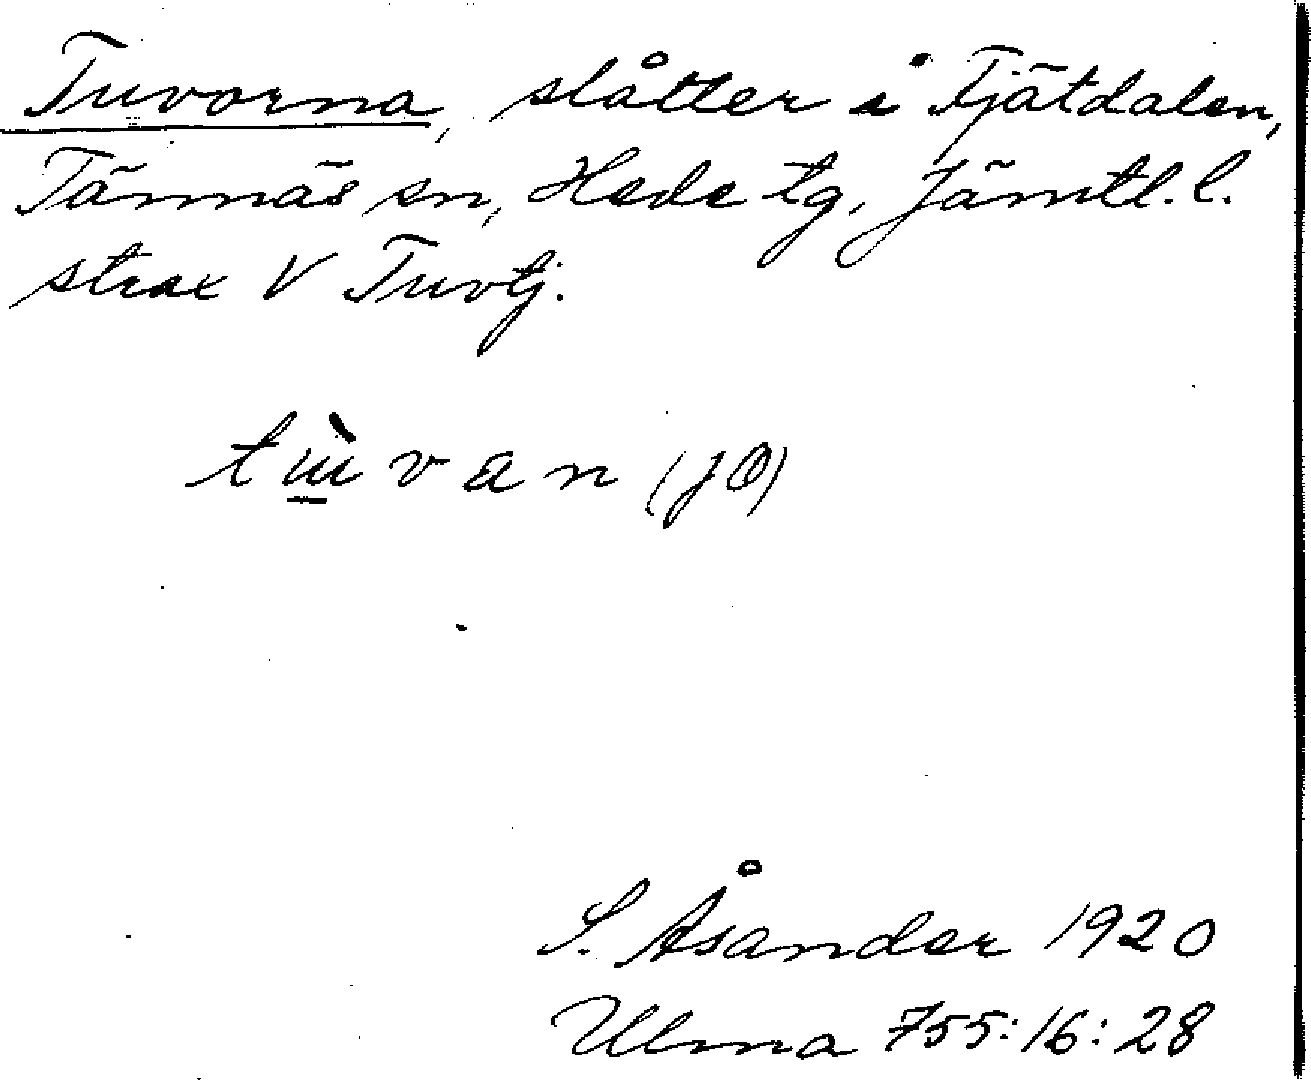 Tuvorna, slåtter i Tjätdalen,
Tännäs sn, Hede tg, Jämtl. l.
strax V Tuvtj.
tɯ̱̀van (JÖ)
S. Åsander 1920
Ulma 755:16:28